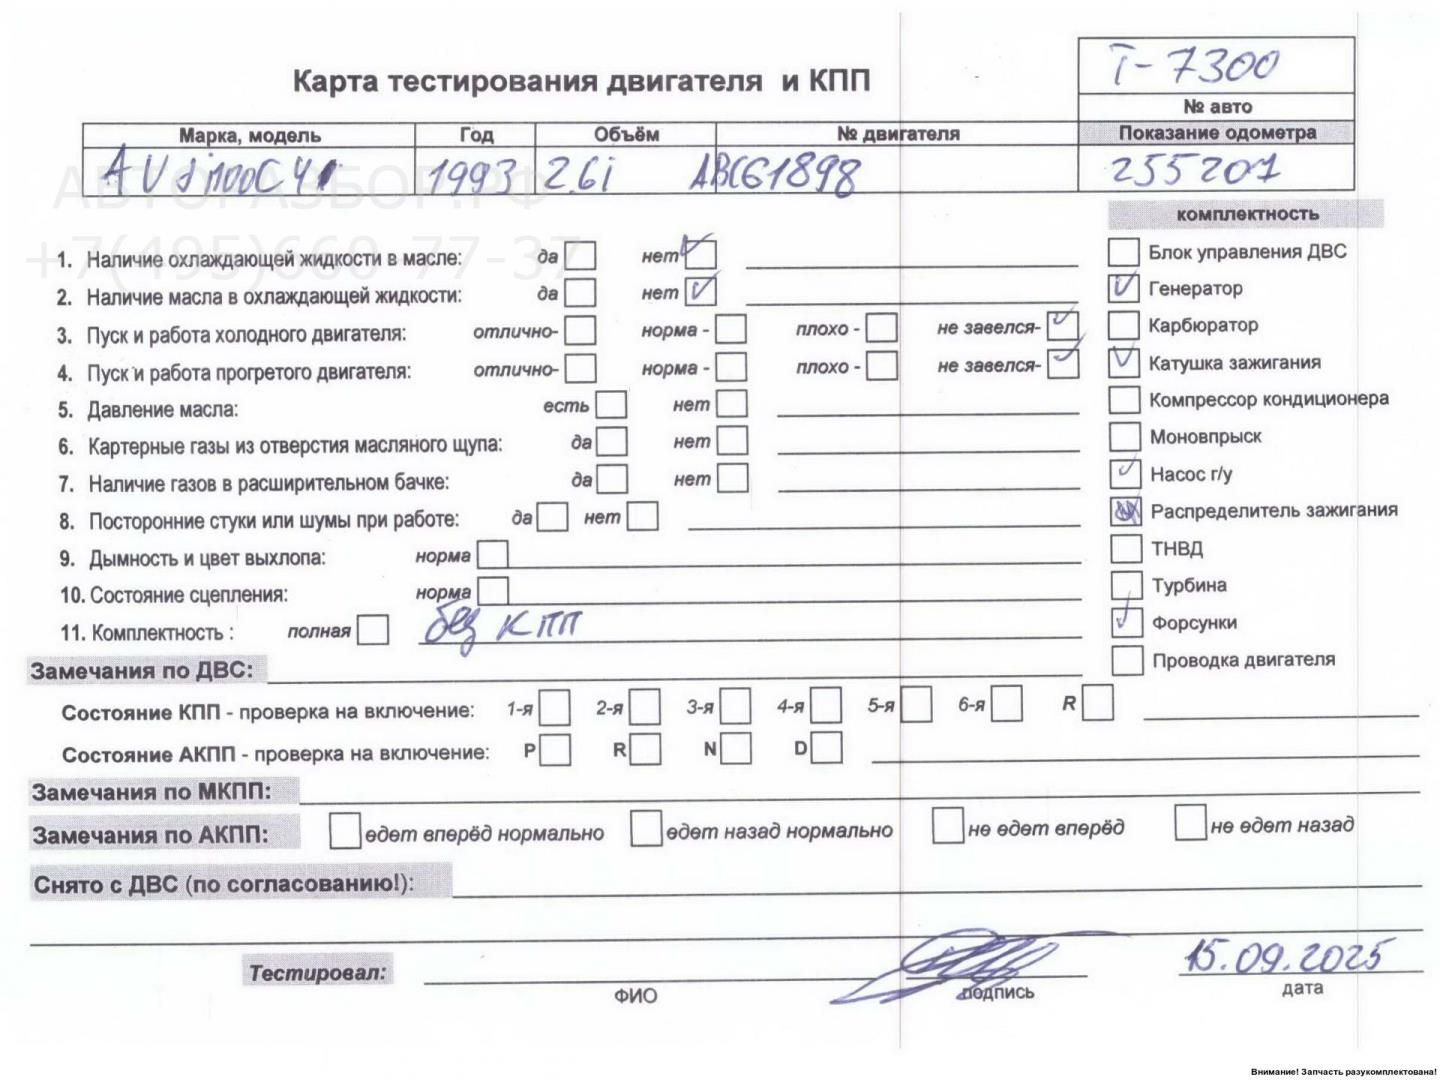 Т-7300
Карта тестирования двигателя и КПП
№ авто
Марка, модель Год Объём № двигателя Показание одометра
AUdi100C4 1993 2.6i ABC61898 255207
АВТОРАЗБОР.РФ
+7(495)660-77-37
комплектность
1. Наличие охлаждающей жидкости в масле: да нет Блок управления ДВС
2. Наличие масла в охлаждающей жидкости: да нет Генератор
3. Пуск и работа холодного двигателя: отлично- норма - плохо - не завелся- Карбюратор
4. Пуск и работа прогретого двигателя: отлично- норма - плохо - не завелся- Катушка зажигания
5. Давление масла: есть нет Компрессор кондиционера
6. Картерные газы из отверстия масляного щупа: да нет Моновпрыск
7. Наличие газов в расширительном бачке: да нет Насос г/у
8. Посторонние стуки или шумы при работе: да нет Распределитель зажигания
9. Дымность и цвет выхлопа: норма ТНВД
10. Состояние сцепления: норма Турбина
11. Комплектность : полная без КПП Форсунки
Замечания по ДВС: Проводка двигателя
Состояние КПП - проверка на включение: 1-я 2-я 3-я 4-я 5-я 6-я R
Состояние АКПП - проверка на включение: P R N D
Замечания по МКПП:
Замечания по АКПП: едет вперёд нормально едет назад нормально не едет вперёд не едет назад
Снято с ДВС (по согласованию!):
Тестировал: 15.09.2025
ФИО подпись дата
Внимание! Запчасть разукомплектована!